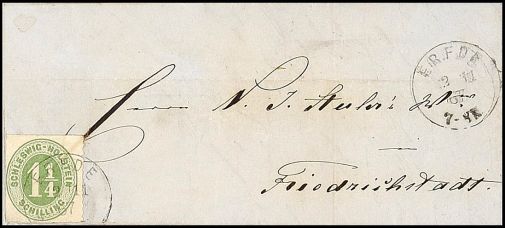 ERFDE
2 11
7-8N
Herrn N. J. Stuhr
in
Friedrichstadt.
SCHLESWIG-HOLSTEIN
1 1/4
SCHILLING